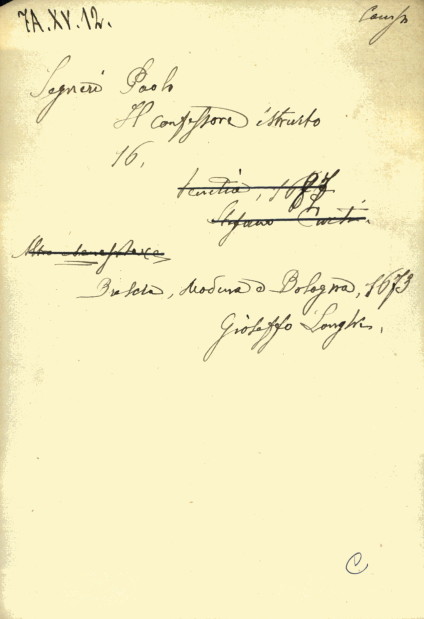 7A.XV.12.
Segneri Paolo
Il confessore istruito
16.
Venetia, 1673
Stefano Curti.
Altro esemplare
Brescia, Modena e Bologna, 1673
Gioseffo Longhi.
C.